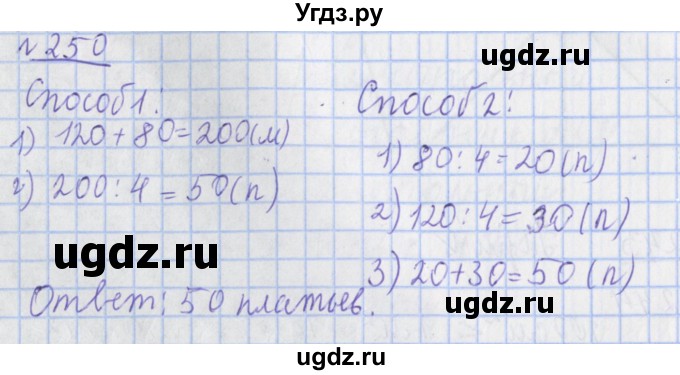 Угдз.ру
№250
Способ1:
1) 120+80=200(м)
2) 200:4=50(п)
Способ2:
1) 80:4=20(п)
2) 120:4=30(п)
3) 20+30=50(п)
Ответ: 50 платьев.
ugdz.ru
ugdz.ru
ugdz.ru
ugdz.ru
ugdz.ru
ugdz.ru
ugdz.ru